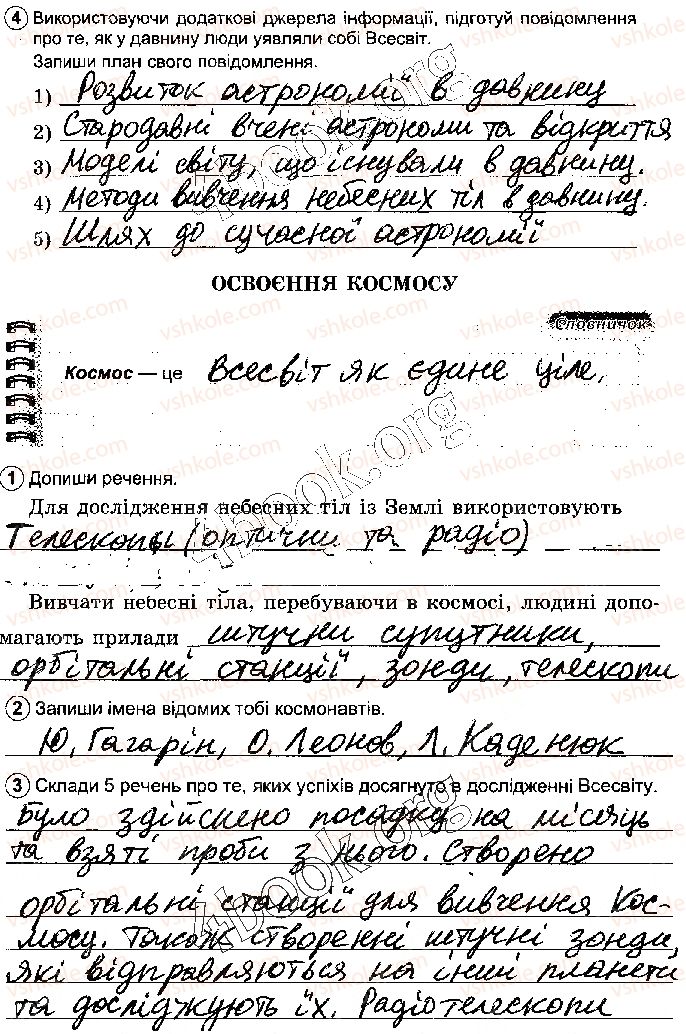 4 Використовуючи додаткові джерела інформації, підготуй повідомлення
про те, як у давнину люди уявляли собі Всесвіт.
Запиши план свого повідомлення.
1) Розвиток астрономії в давнину
2) Стародавні вчені астрономи та відкриття
3) Моделі світу, що існували в давнину.
4) Методи вивчення небесних тіл в давнину.
5) Шлях до сучасної астрономії
ОСВОЄННЯ КОСМОСУ
Словничок
Космос — це Всесвіт як єдине ціле.
1 Допиши речення.
Для дослідження небесних тіл із Землі використовують
Телескопы (оптични та радіо)
Вивчати небесні тіла, перебуваючи в космосі, людині допо-
магають прилади штучни супутники,
орбітальні станції, зонди, телескопи
2 Запиши імена відомих тобі космонавтів.
Ю. Гагарін, О. Леонов, Л. Каденюк
3 Склади 5 речень про те, яких успіхів досягнуто в дослідженні Всесвіту.
Було здійснено посадку на місяць
та взяті проби з нього. Створено
орбітальні станції для вивчення Кос-
мосу. Також створенні штучні зонди,
які відправляються на інші планети
та досліджують їх. Радіотелескопи
4book.org
4book.org
4book.org
vshkole.com